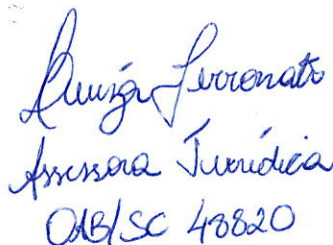 Luiza Ferronato
Assessora Jurídica
OAB/SC 48820